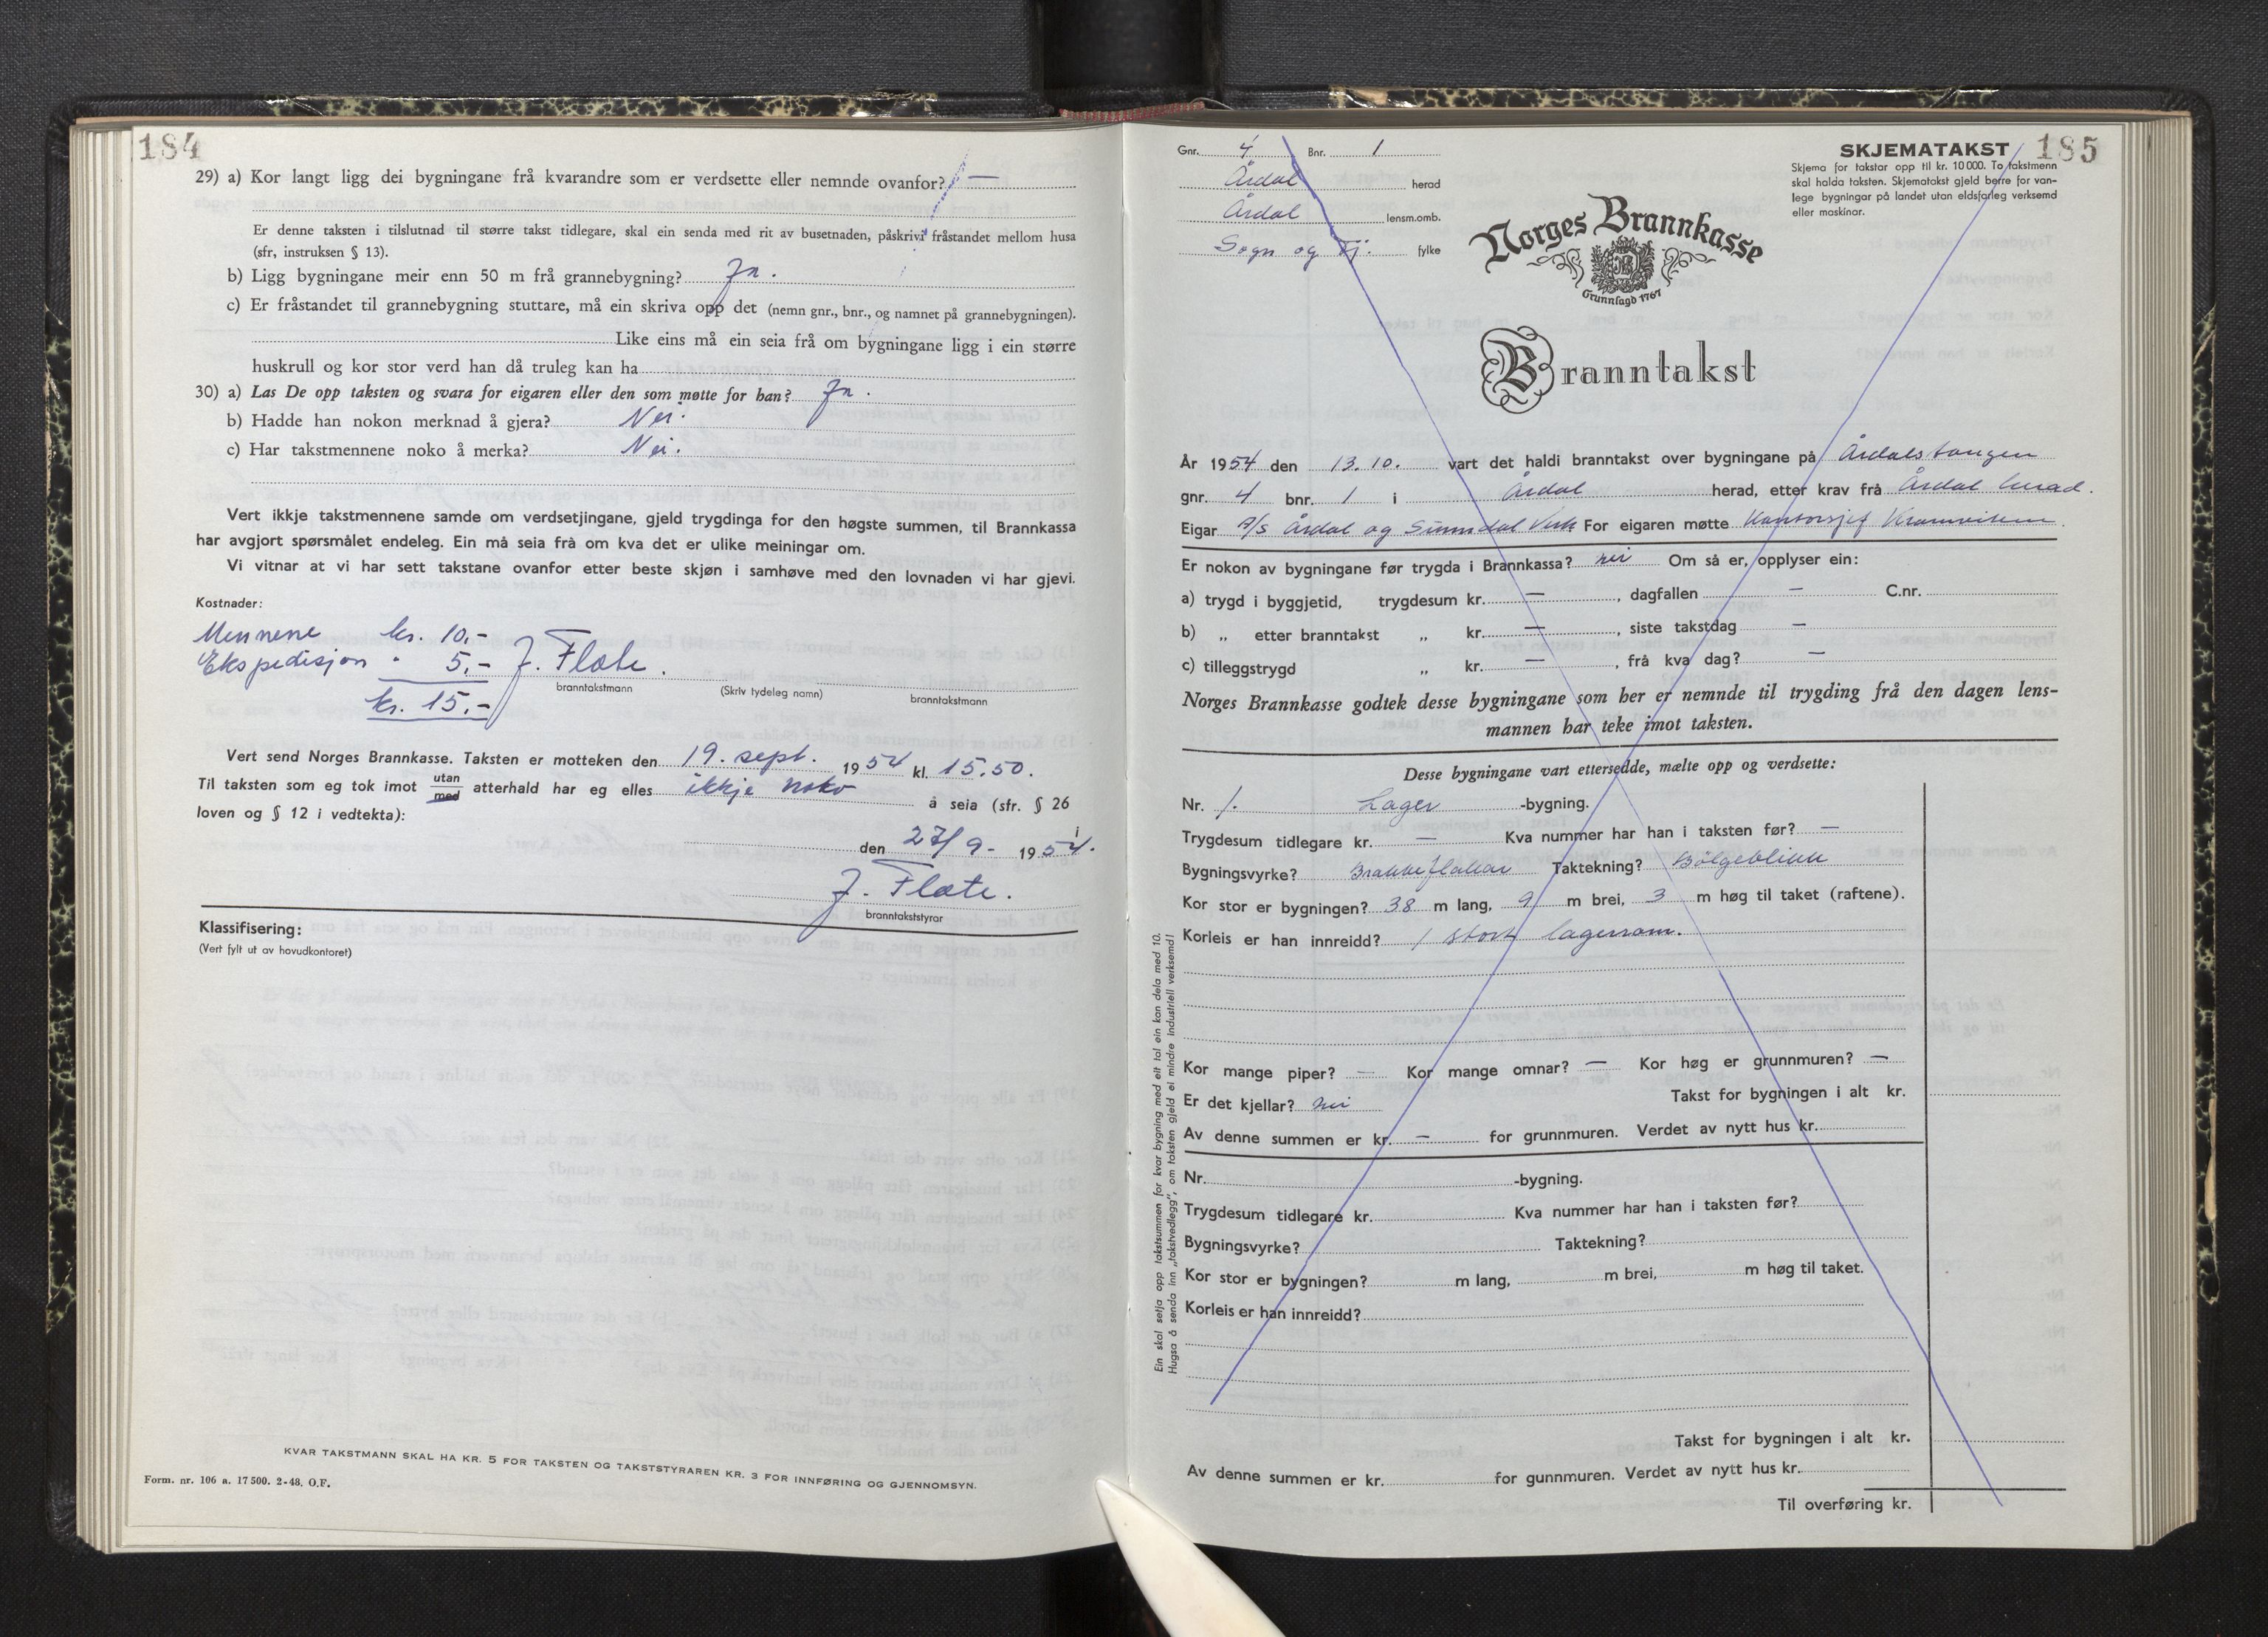 184
29) a) Kor langt ligg dei bygningane frå kvarandre som er verdsette eller nemnde ovanfor? —
Er denne taksten i tilslutnad til større takst tidlegare, skal ein senda med rit av busetnaden, påskrivi fråstandet mellom husa
(sfr, instruksen § 13).
b) Ligg bygningane meir enn 50 m frå grannebygning? Ja.
c) Er fråstandet til grannebygning stuttare, må ein skriva opp det (nemn gnr., bnr., og namnet på grannebygningen).
Like eins må ein seia frå om bygningane ligg i ein større
huskrull og kor stor verd han då truleg kan ha
30) a) Las De opp taksten og svara for eigaren eller den som møtte for han? Ja.
b) Hadde han nokon merknad å gjera? Nei.
c) Har takstmennene noko å merka? Nei.
Vert ikkje takstmennene samde om verdsetjingane, gjeld trygdinga for den høgste summen, til Brannkassa
har avgjort spørsmålet endeleg. Ein må seia frå om kva det er ulike meiningar om.
Vi vitnar at vi har sett takstane ovanfor etter beste skjøn i samhøve med den lovnaden vi har gjevi.
Kostnader:
Mennene kr. 10,-
Ekspedisjon " 5,- J. Flate.
branntakstmann (Skriv tydeleg namn) branntakstmann
kr. 15,-
Vert send Norges Brannkasse. Taksten er motteken den 19. sept. 1954 kl. 15.50.
Til taksten som eg tok imot utan med atterhald har eg elles ikkje noko å seia (sfr. § 26
loven og § 12 i vedtekta):
den 27/9 - 1954.
J. Flate.
branntakststyrar
Klassifisering:
(Vert fylt ut av hovudkontoret)
KVAR TAKSTMANN SKAL HA KR. 5 FOR TAKSTEN OG TAKSTSTYRAREN KR. 3 FOR INNFØRING OG GJENNOMSYN.
Form. nr. 106 a. 17500. 2-48. O.F.
Gnr. 4 Bnr. 1
Årdal herad
Årdal lensm.omb.
Sogn og Fj. fylke
SKJEMATAKST 185
Skjema for takstar opp til kr. 10 000. To takstmenn
skal halda taksten. Skjematakst gjeld berre for van-
lege bygningar på landet utan eldsfarleg verksemd
eller maskinar.
Norges Brannkasse
Grunnlagd 1767
Branntakst
År 1954 den 13. 10. vart det haldi branntakst over bygningane på Årdalstangen
gnr. 4 bnr. 1 i Årdal herad, etter krav frå Årdal herad.
Eigar A/S Årdal og Sunndal Verk For eigaren møtte Kontorsjef
Er nokon av bygningane før trygda i Brannkassa? nei Om så er, opplyser ein:
a) trygd i byggjetid, trygdesum kr. — , dagfallen — C.nr.
b) „ etter branntakst „ kr. — , siste takstdag —
c) tilleggstrygd „ kr. — , frå kva dag? —
Norges Brannkasse godtek desse bygningane som her er nemnde til trygding frå den dagen lens-
mannen har teke imot taksten.
Desse bygningane vart ettersedde, mælte opp og verdsette:
Nr. 1. Lager -bygning.
Trygdesum tidlegare kr. — Kva nummer har han i taksten før? —
Bygningsvyrke? Brakkeflakar Taktekning? Bølgeblikk
Kor stor er bygningen? 38 m lang, 9 m brei, 3 m høg til taket (raftene).
Korleis er han innreidd? 1 stort lagerrom.
Kor mange piper? — Kor mange omnar? — Kor høg er grunnmuren? —
Er det kjellar? nei Takst for bygningen i alt kr.
Av denne summen er kr. — for grunnmuren. Verdet av nytt hus kr.
Nr. -bygning.
Trygdesum tidlegare kr. Kva nummer har han i taksten før?
Bygningsvyrke? Taktekning?
Kor stor er bygningen? m lang, m brei, m høg til taket.
Korleis er han innreidd?
Takst for bygningen i alt kr.
Av denne summen er kr. for gunnmuren. Verdet av nytt hus kr.
Til overføring kr.
Ein skal setja opp takstsummen for kvar bygning med eit tal ein kan dela med 10.
Hugsa å senda inn „takstvedlegg", om taksten gjeld ei mindre industriell verksemd!